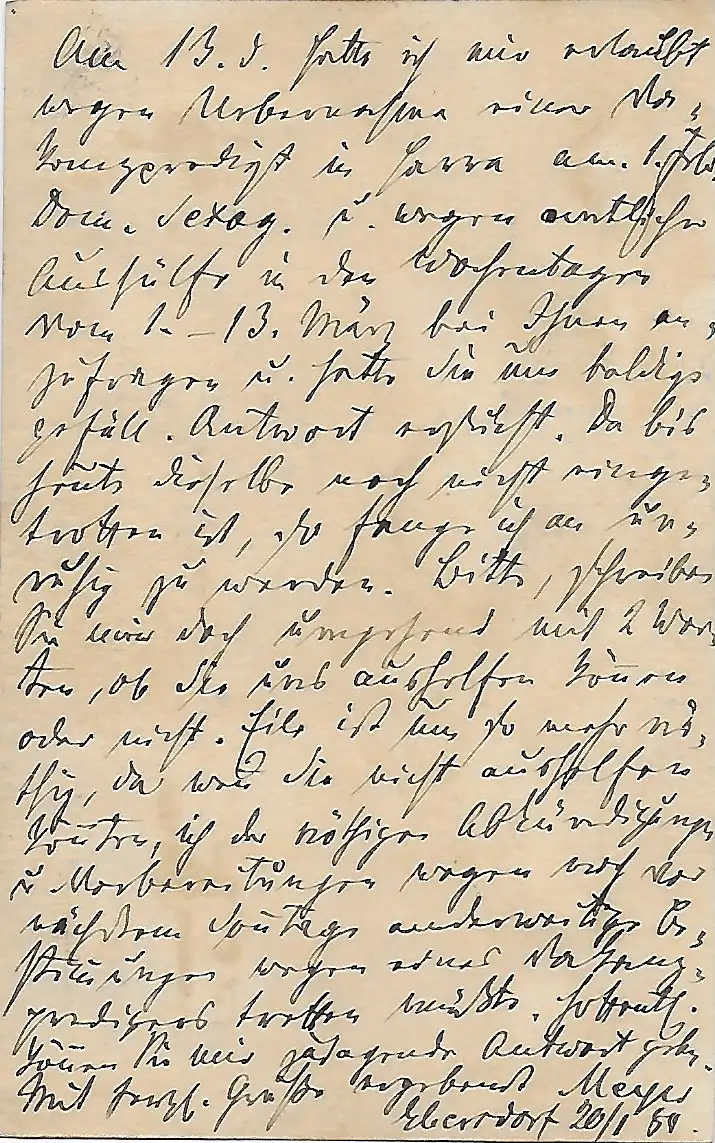 Am 13. d. hatte ich mir erlaubt
wegen Uebernahme einer Va-
kanzpredigt in Harra am 1. Febr.
Dom. Sexag. u. wegen amtlicher
Aushülfe in den Wochentagen
vom 1. – 13. März bei Ihnen an-
zufragen u. hatte Sie um baldige
gefäll. Antwort ersucht. Da bis
heute dieselbe noch nicht einge-
troffen ist, so fange ich an un-
ruhig zu werden. Bitte, schreiben
Sie mir doch umgehend mit 2 Wor-
ten, ob Sie uns aushelfen können
oder nicht. Eile ist um so mehr nö-
thig, da wenn Sie nicht aushelfen
könnten, ich der nöthigen Abkündigungen
u. Vorbereitungen wegen noch vor
nächstem Sonntage anderweitige Be-
stimmungen wegen eines Vakanz-
predigers treffen müßte. Hoffentl.
können Sie mir zusagende Antwort geben.
Mit herzl. Gruße ergebenst Meyer
Ebersdorf 20/1